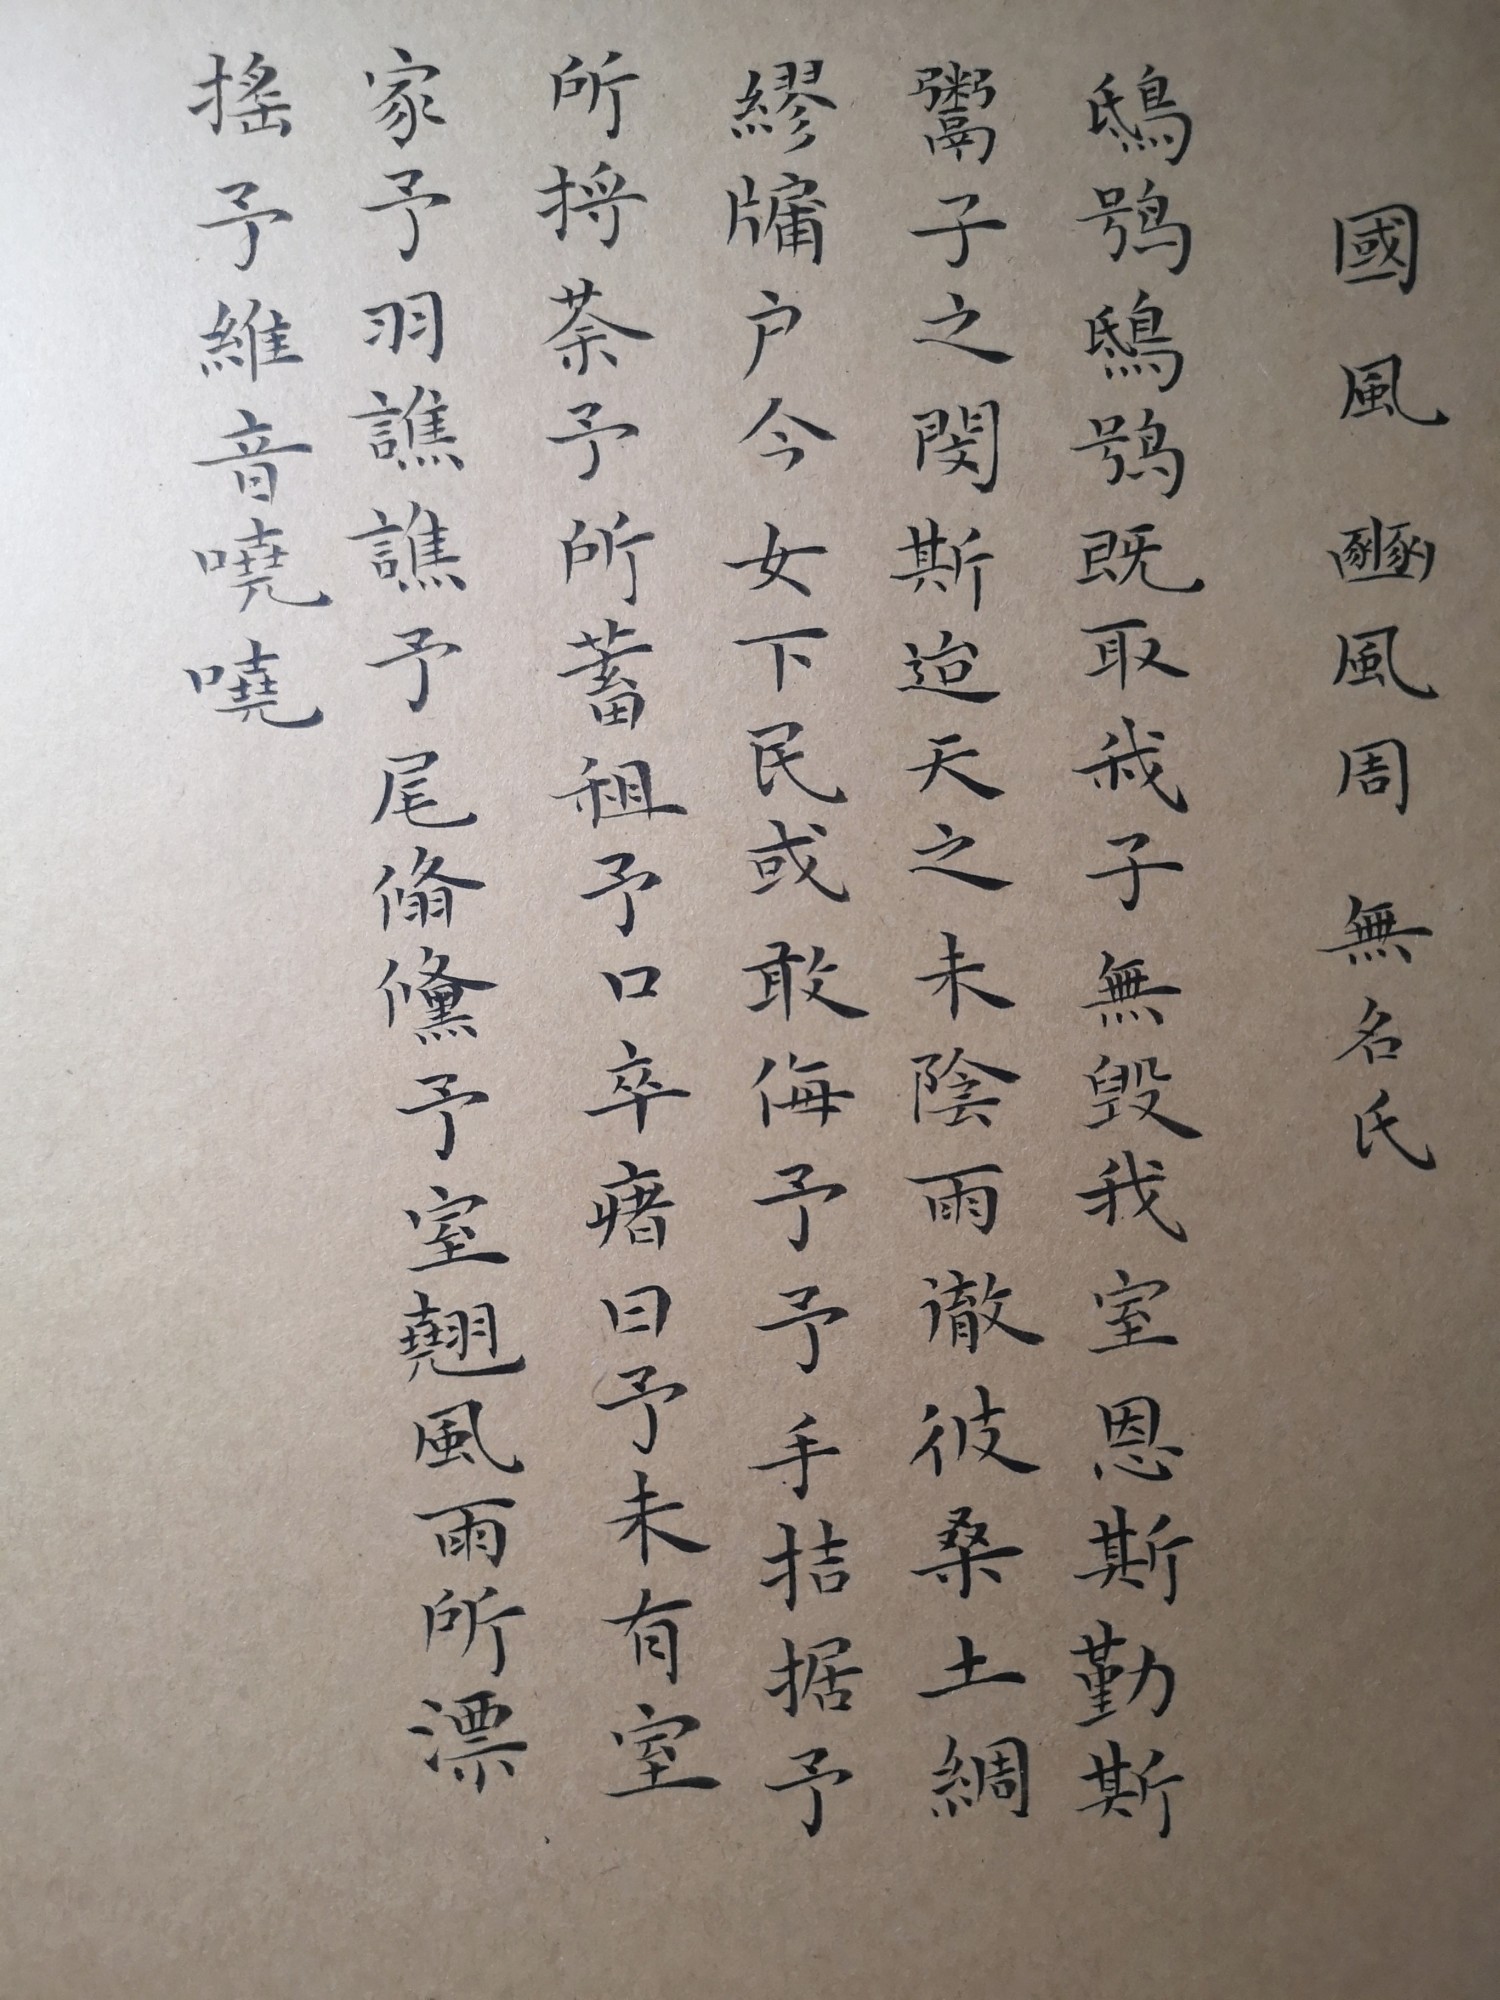 國風 豳風周 無名氏
鴟鴞鴟鴞既取我子無毀我室恩斯勤斯
鬻子之閔斯迨天之未陰雨徹彼桑土綢
繆牖户今女下民或敢侮予予手拮据予
所捋荼予所蓄租予口卒瘏曰予未有室
家予羽譙譙予尾翛儵予室翹風雨所漂
搖予維音嘵嘵